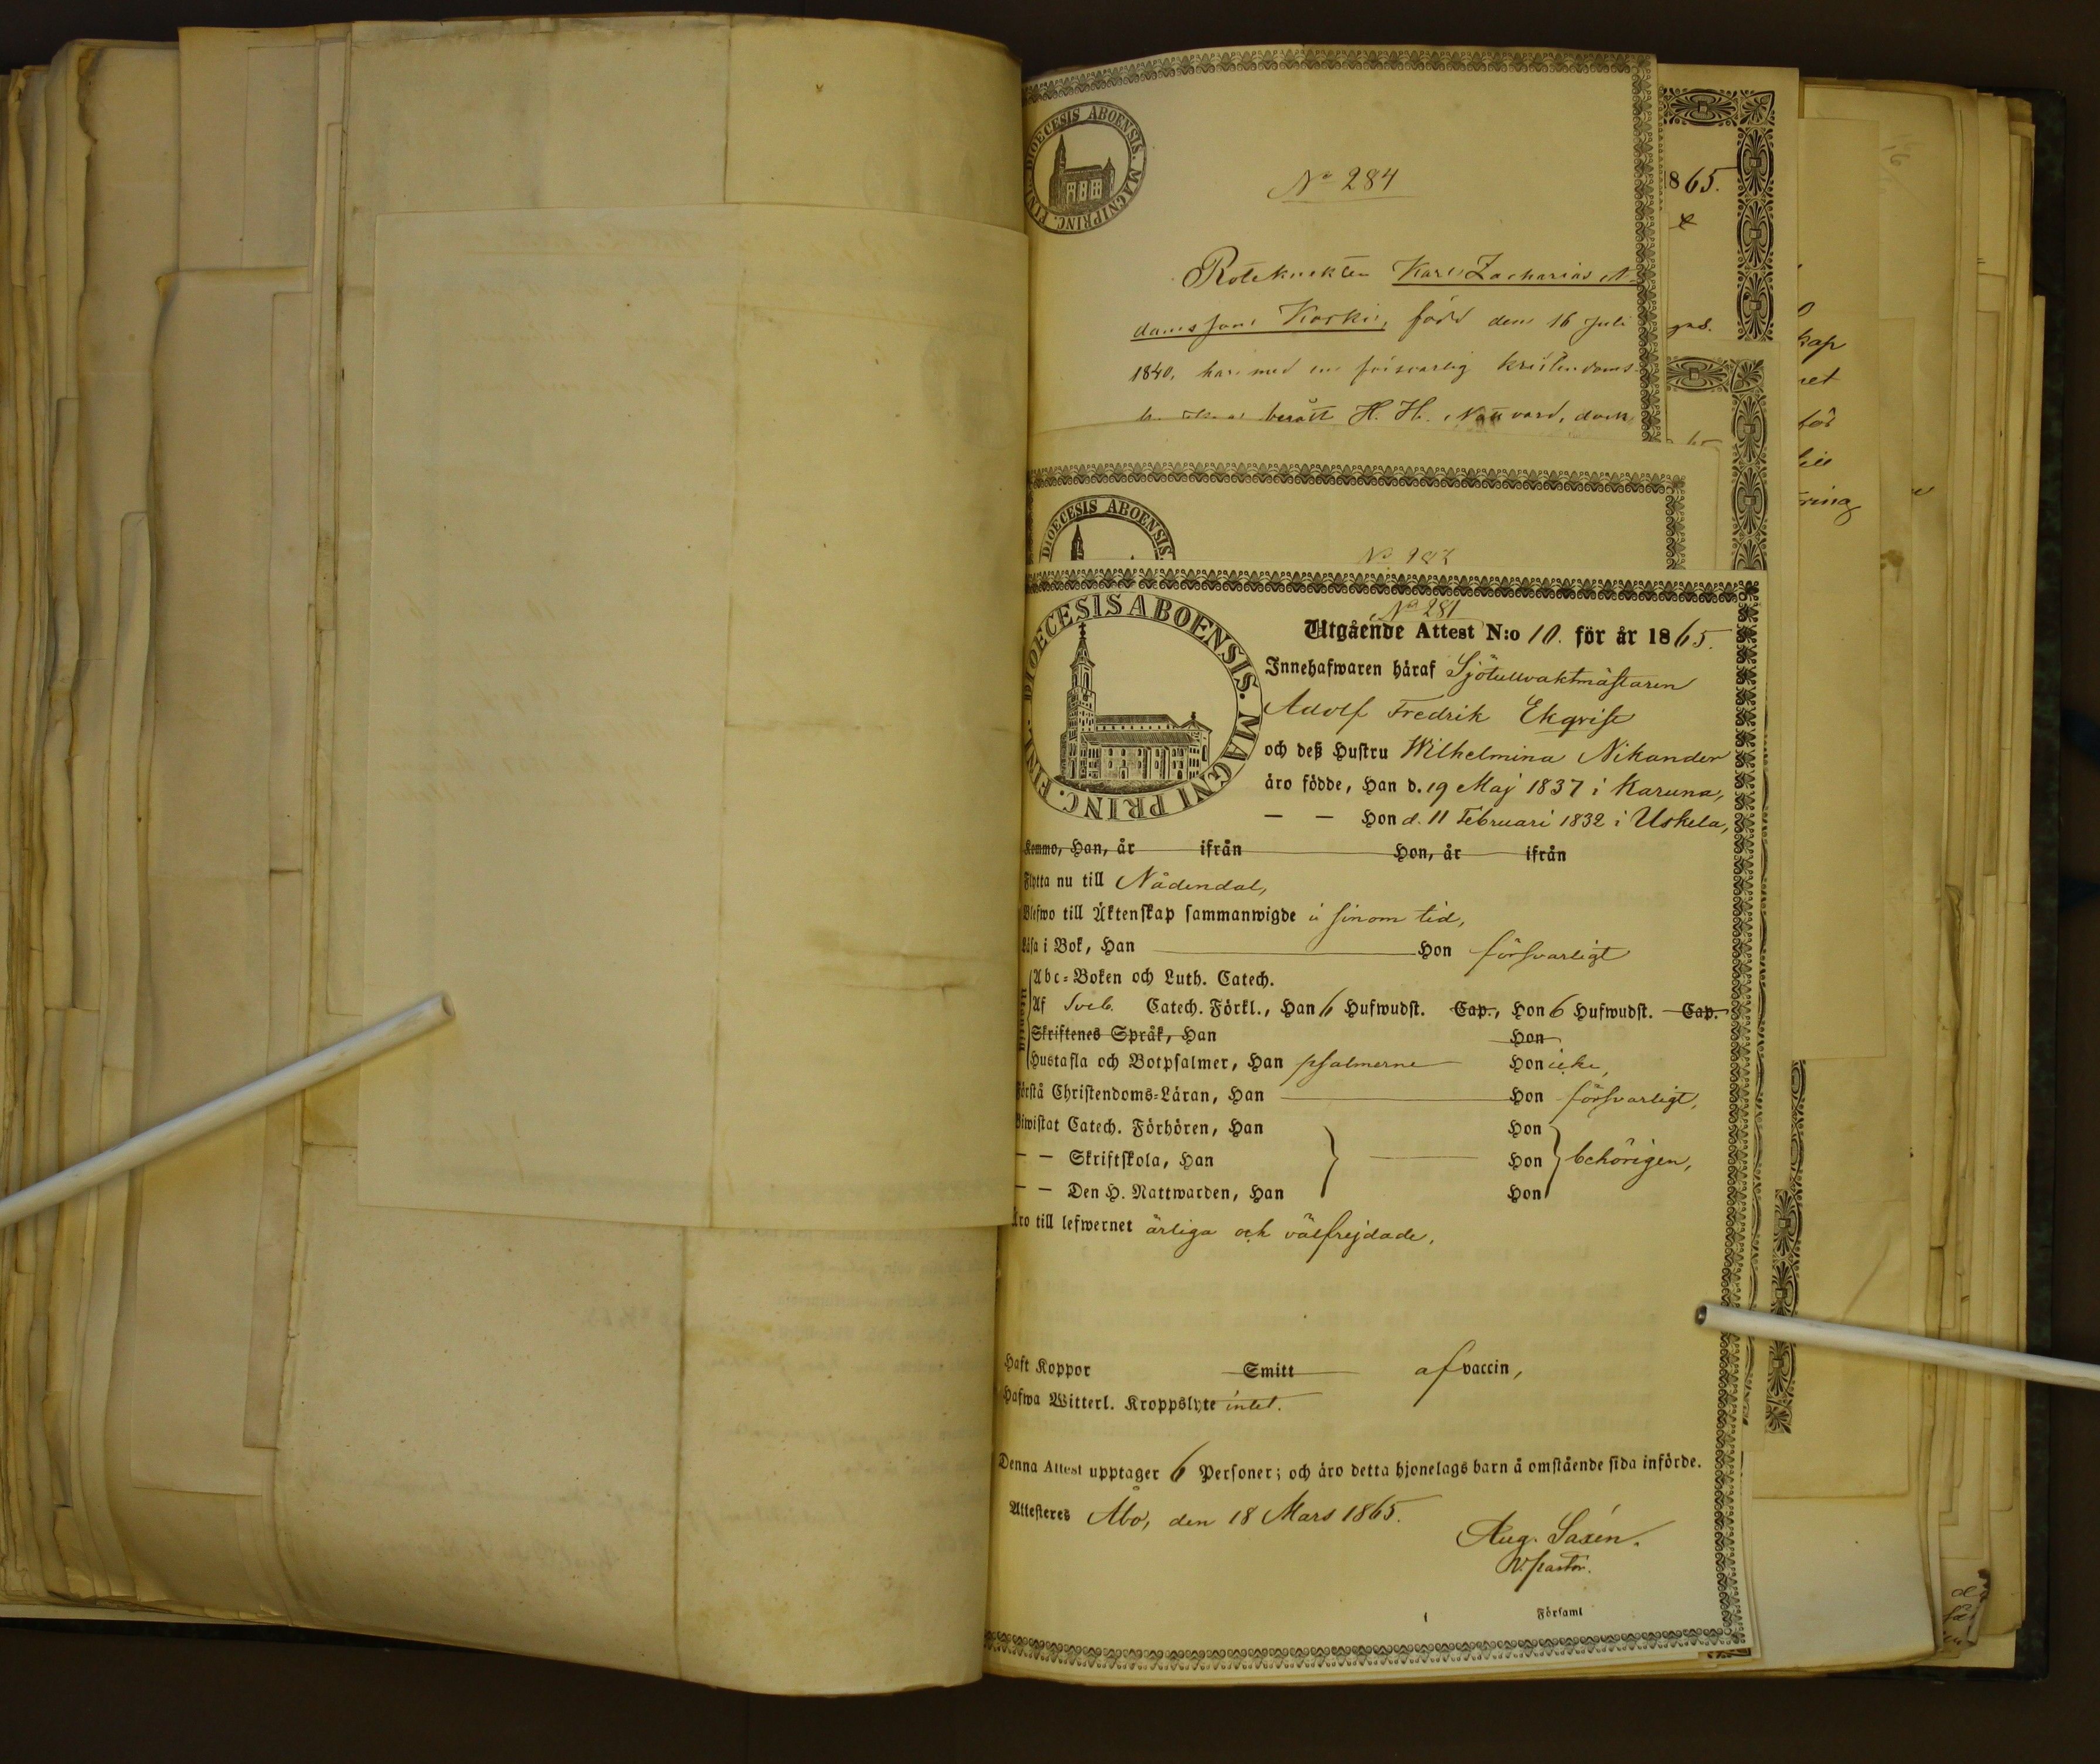 DIOECESIS ABOENSIS. MAGNI PRINC. FINL.
No 284
Roteknekten Karl Zacharias A-
damsson Koski, född den 16 Juli
1840, har med en försvarlig kristendoms-
berått H. H. Nattvard, dock
DIOECESIS ABOENSIS.
No
1865.
DIOECESIS ABOENSIS. MAGNI PRINC. FINL.
No 281
Utgående Attest N:o 10. för år 1865.
Innehafwaren häraf Sjötullvaktmästaren
Adolf Fredrik Ekqvist
och deß Hustru Wilhelmina Nikander
äro födde, Han d. 19 Maj 1837 i Karuna,
— — Hon d. 11 Februari 1832 i Uskela,
Kommo, Han, år ifrån Hon, år ifrån
Flytta nu till Nådendal,
Blefwo till Äktenskap sammanwigde i sinom tid,
Läsa i Bok, Han — Hon försvarligt
Abc-Boken och Luth. Catech.
Af Sveb. Catech. Förkl., Han 6 Hufwudst. Cap., Hon 6 Hufwudst. Cap.
Skriftenes Språk, Han Hon
Hustafla och Botpsalmer, Han psalmerne Hon icke,
Förstå Christendoms-Läran, Han — Hon försvarligt,
Biwistat Catech. Förhören, Han Hon
— — Skriftskola, Han — Hon behörigen,
— — Den H. Nattwarden, Han Hon
Äro till lefwernet ärliga och välfrejdade.
Haft Koppor Smitt af vaccin,
Hafwa Witterl. Kroppslyte intet.
Denna Attest upptager 6 Personer; och äro detta hjonelags barn å omstående sida införde.
Attesteres Åbo, den 18 Mars 1865.
Aug. Saxén.
V. pastor.
Församl